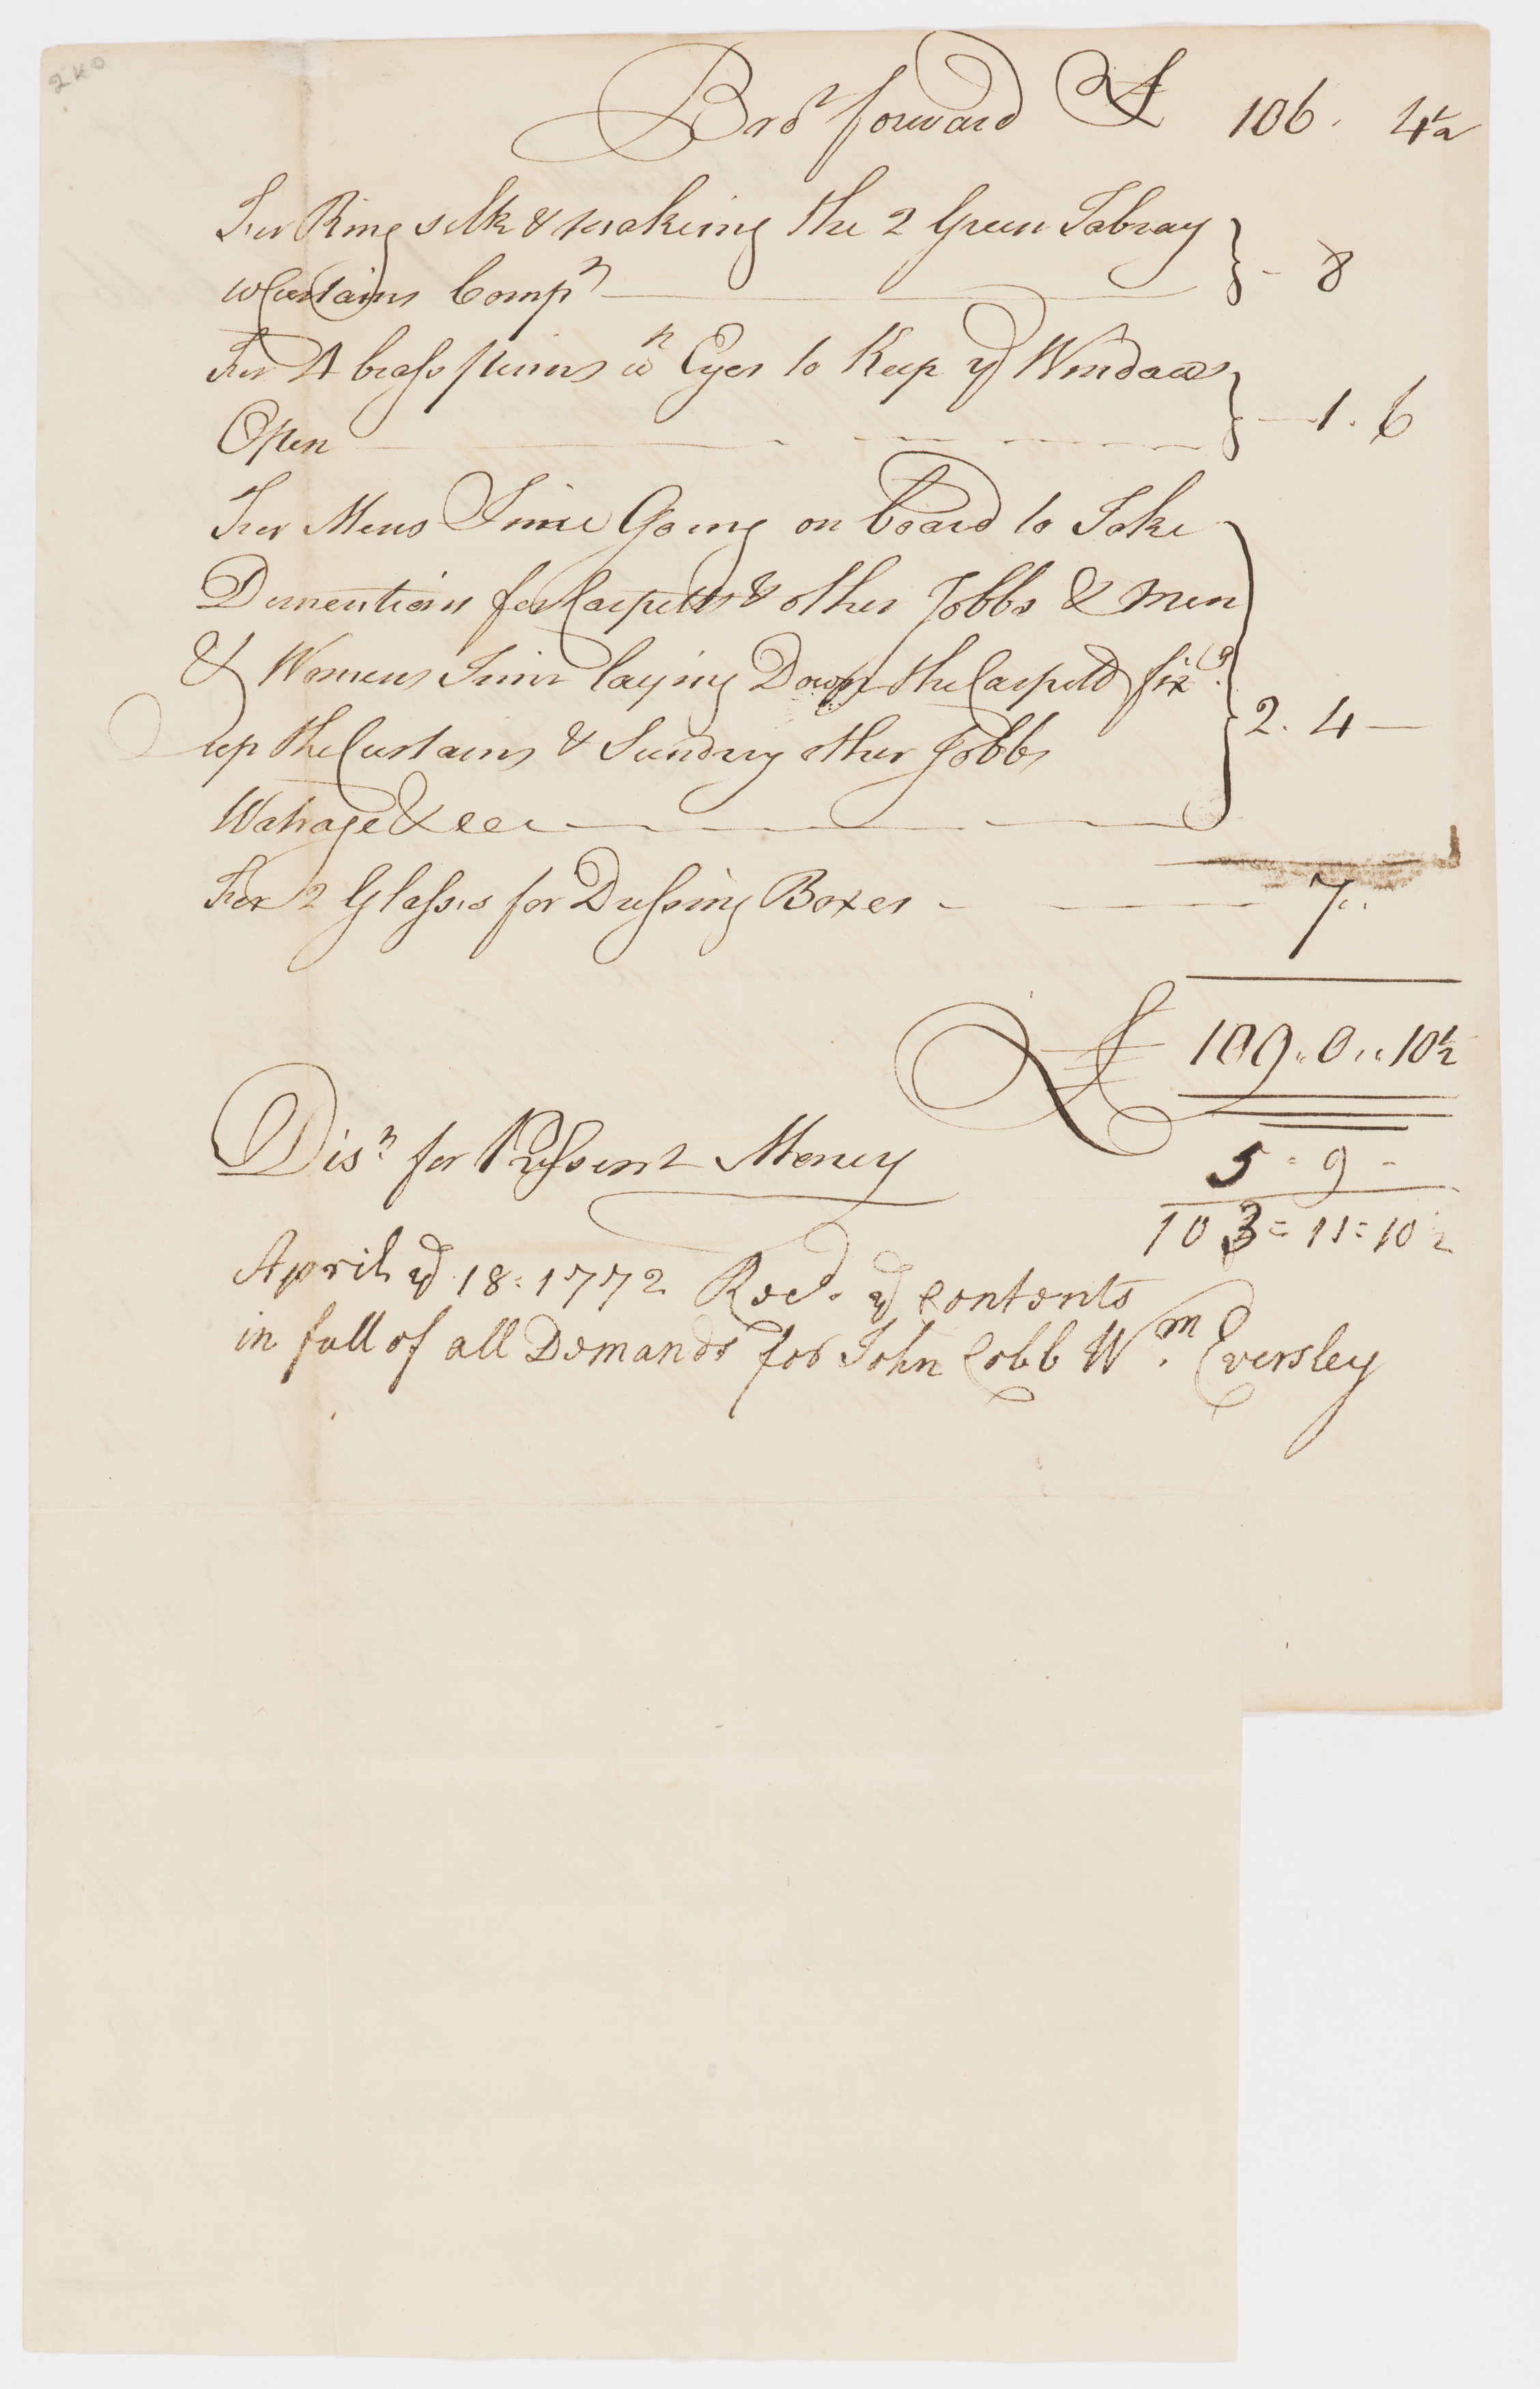 240
Bro.t forward £ 106. 4½
For Ring silk & makeing the 2 Green Tabray
w Curtains Comp.t — 8
For 4 brass pinns w.h Eyes to Keep y.e Windows
Open — 1. 6
For Mens Time Going on board to Take
Dimentions for Carpetts & other Jobbs & Men
& Womens Time laying Down the Carpett fix.g
up the Curtains & Sundry other Jobbs
Watrage &cc — 2. 4 —
For 2 Glasses for Dressing Boxes — 7..
£ 109.. 0.. 10½
Dis.t for Pressent Money 5 = 9 -
103 = 11 = 10½
April ye 18: 1772 Recd. ye Contents
in full of all Demands for John Cobb Wm. Eversley